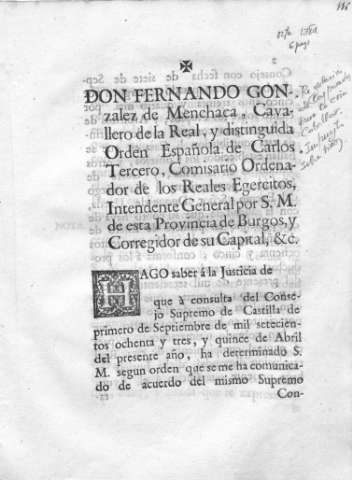 116
6 pags
✠
DON FERNANDO GON-
zalez de Menchaca, Cava-
llero de la Real, y distinguida
Orden Española de Carlos
Tercero, Comisario Ordena-
dor de los Reales Egercitos,
Intendente General por S. M.
de esta Provincia de Burgos, y
Corregidor de su Capital, &c.
HAGO saber á la Justicia de
que à consulta del Conse-
jo Supremo de Castilla de
primero de Septiembre de mil setecien-
tos ochenta y tres, y quince de Abril
del presente año, ha determinado S.
M. segun orden que se me ha comunica-
do de acuerdo del mismo Supremo
Con-